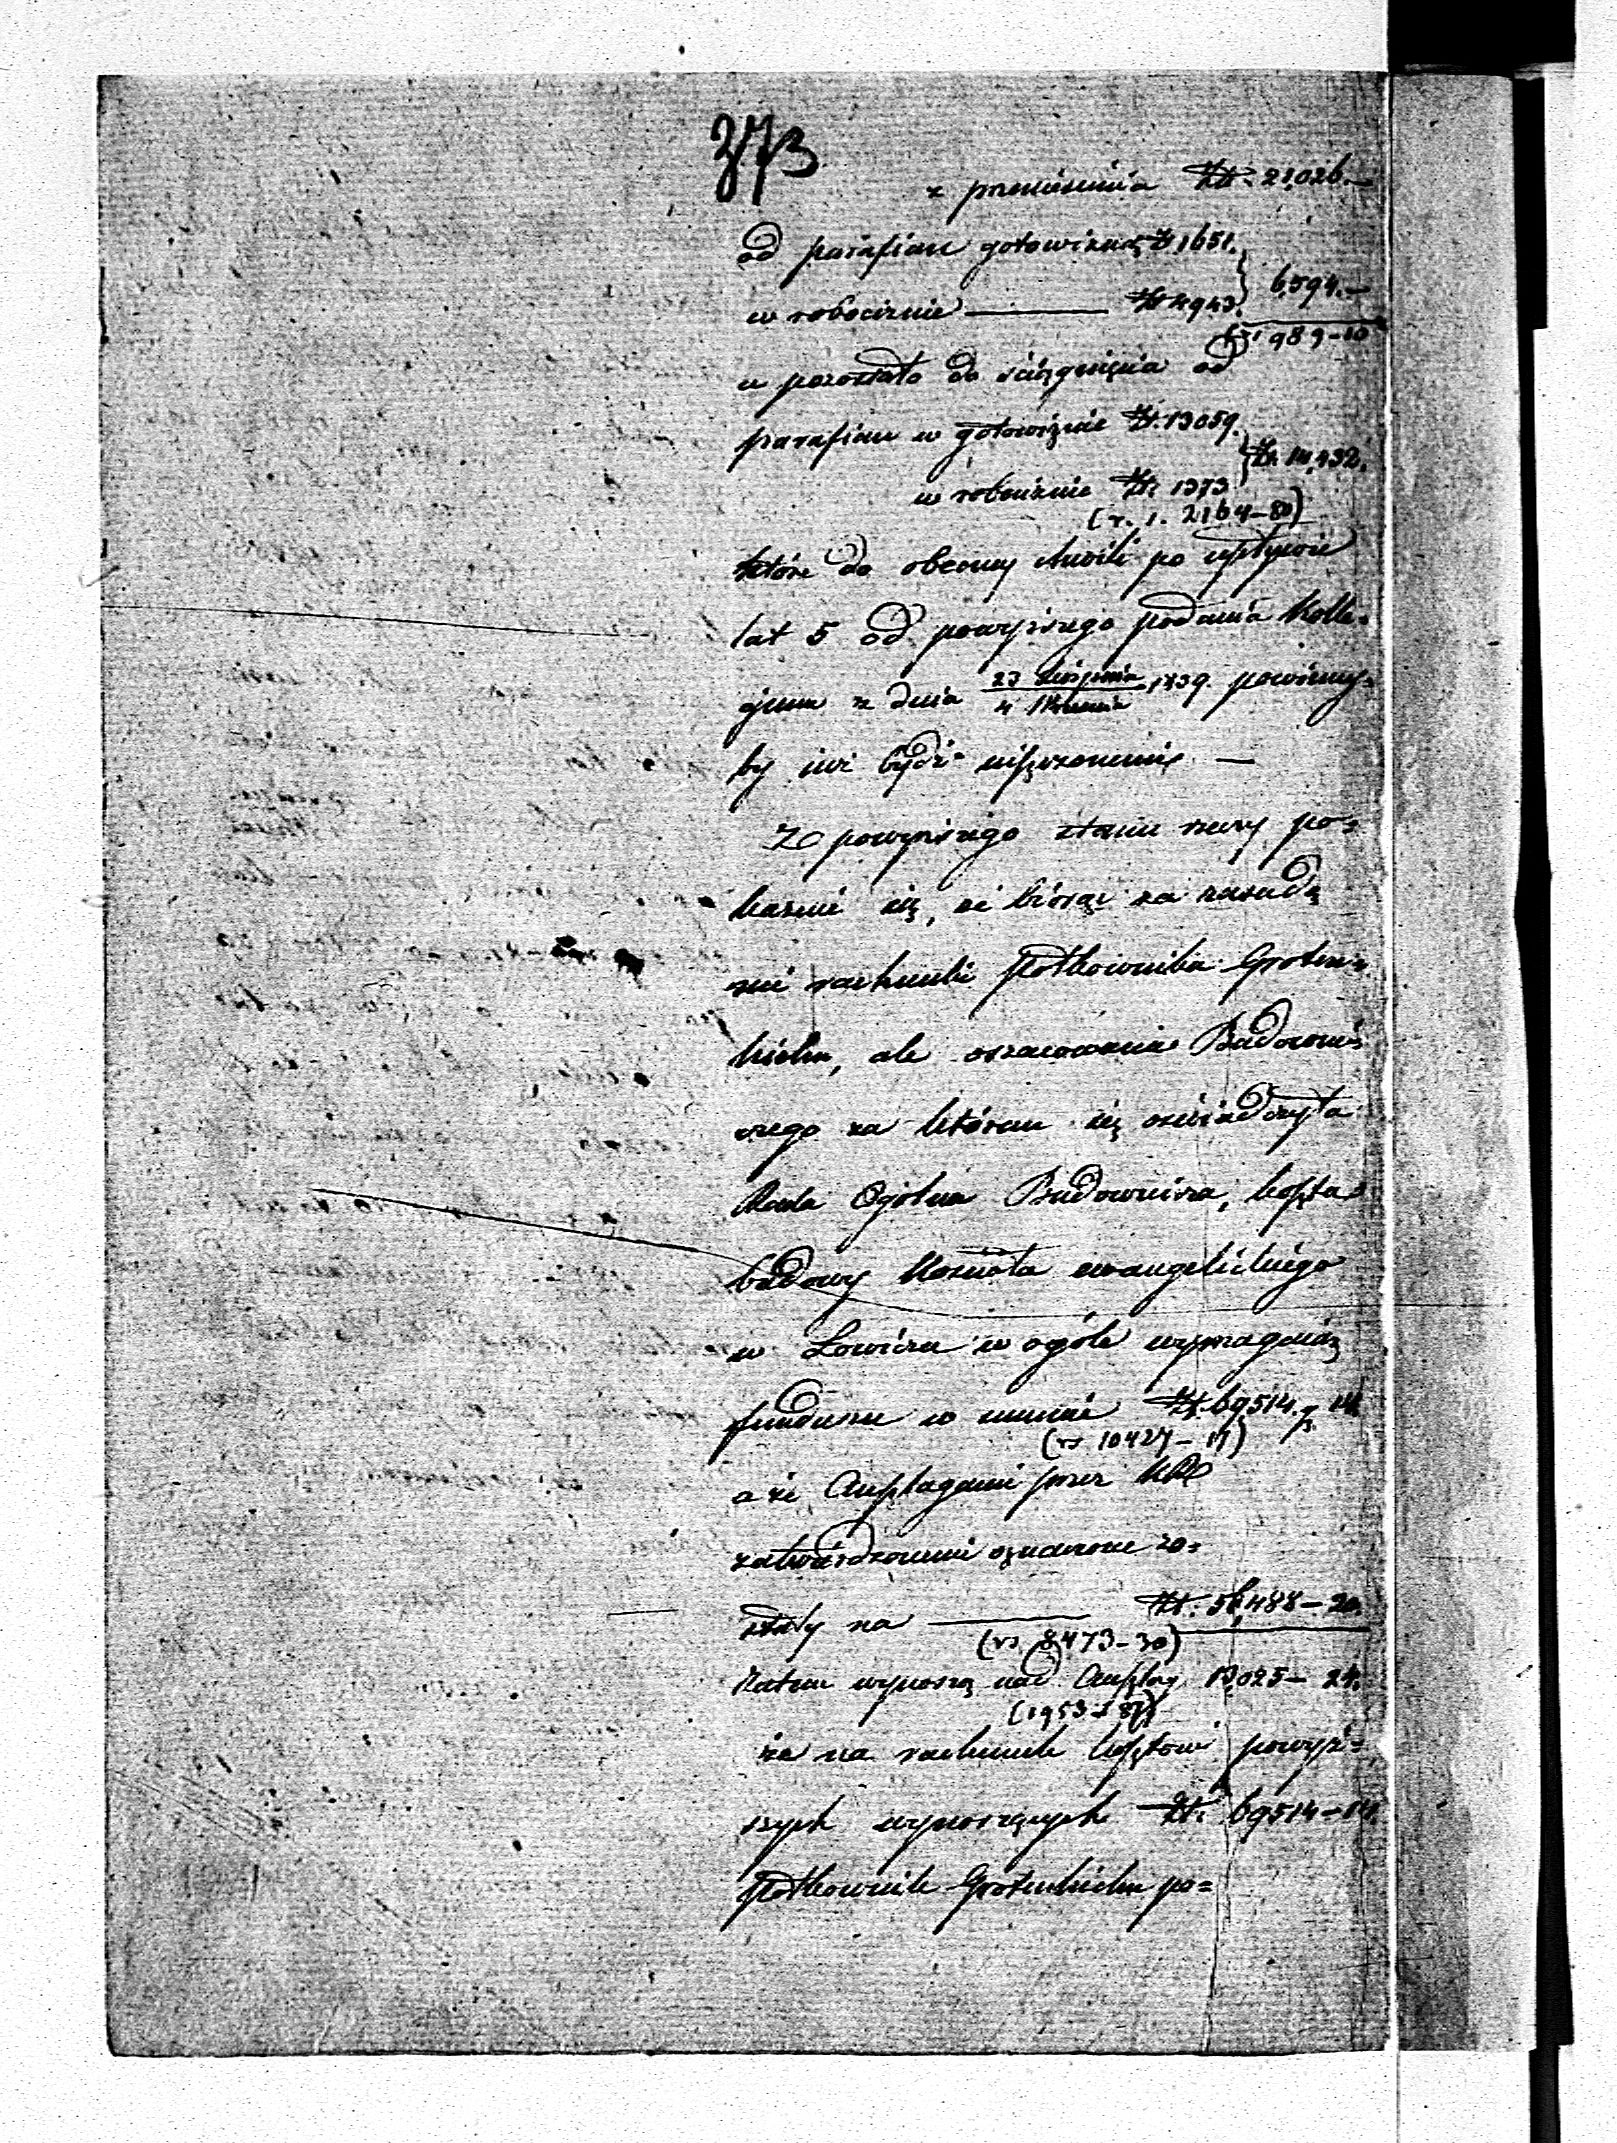 373
z przeniesienia Zł. 21,026.—
od parafian gotowizną Zł. 1651.
w robociźnie — Zł 4943. 6,594.—
989-10
a pozostało do ściągnięcia od
parafian w gotowiźnie Zł. 13059.
w robociźnie Zł. 1373
(r. s. 2164-80)
które do obecny chwili po upływie
lat 5 od powyższego podania Kolle-
gium z dnia 23 Sierpnia / 4 Września 1839. powinny-
by już bydź uiszczonemi. —
Z powyższego stanu rzeczy po-
każuie się, że biorąc za zasadę
nie rachunki Półkownika Groten-
hielm, ale oszacowania Budowni-
czego za któremi się oświadczyła
Rada Ogólna Budownicza, koszta
budowy Kościoła ewangelickiego
w Łowiczu w ogóle wymagaią
funduszu w summie Zł. 69514. g. 14
(rs 10427-17)
a że Anszlagami przez KR
zatwierdzonemi oznaczone zo-
stały na — Zł. 56,488-20.
(rs. 8473-30)
Zatem wynoszą nad Anszlag 13,025-24.
(1953-87)
że na rachunek kosztów powyż-
szych wynoszących Zł. 69514-14.
Półkownik Grotenhielm po-